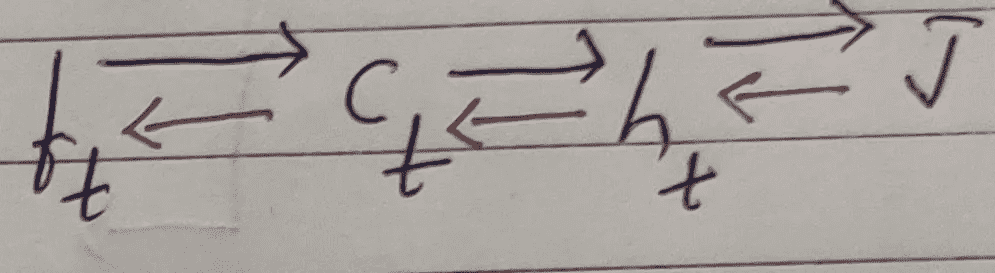 f_t ⟶ C_t ⟶ h_t ⟶ J
⟵ ⟵ ⟵